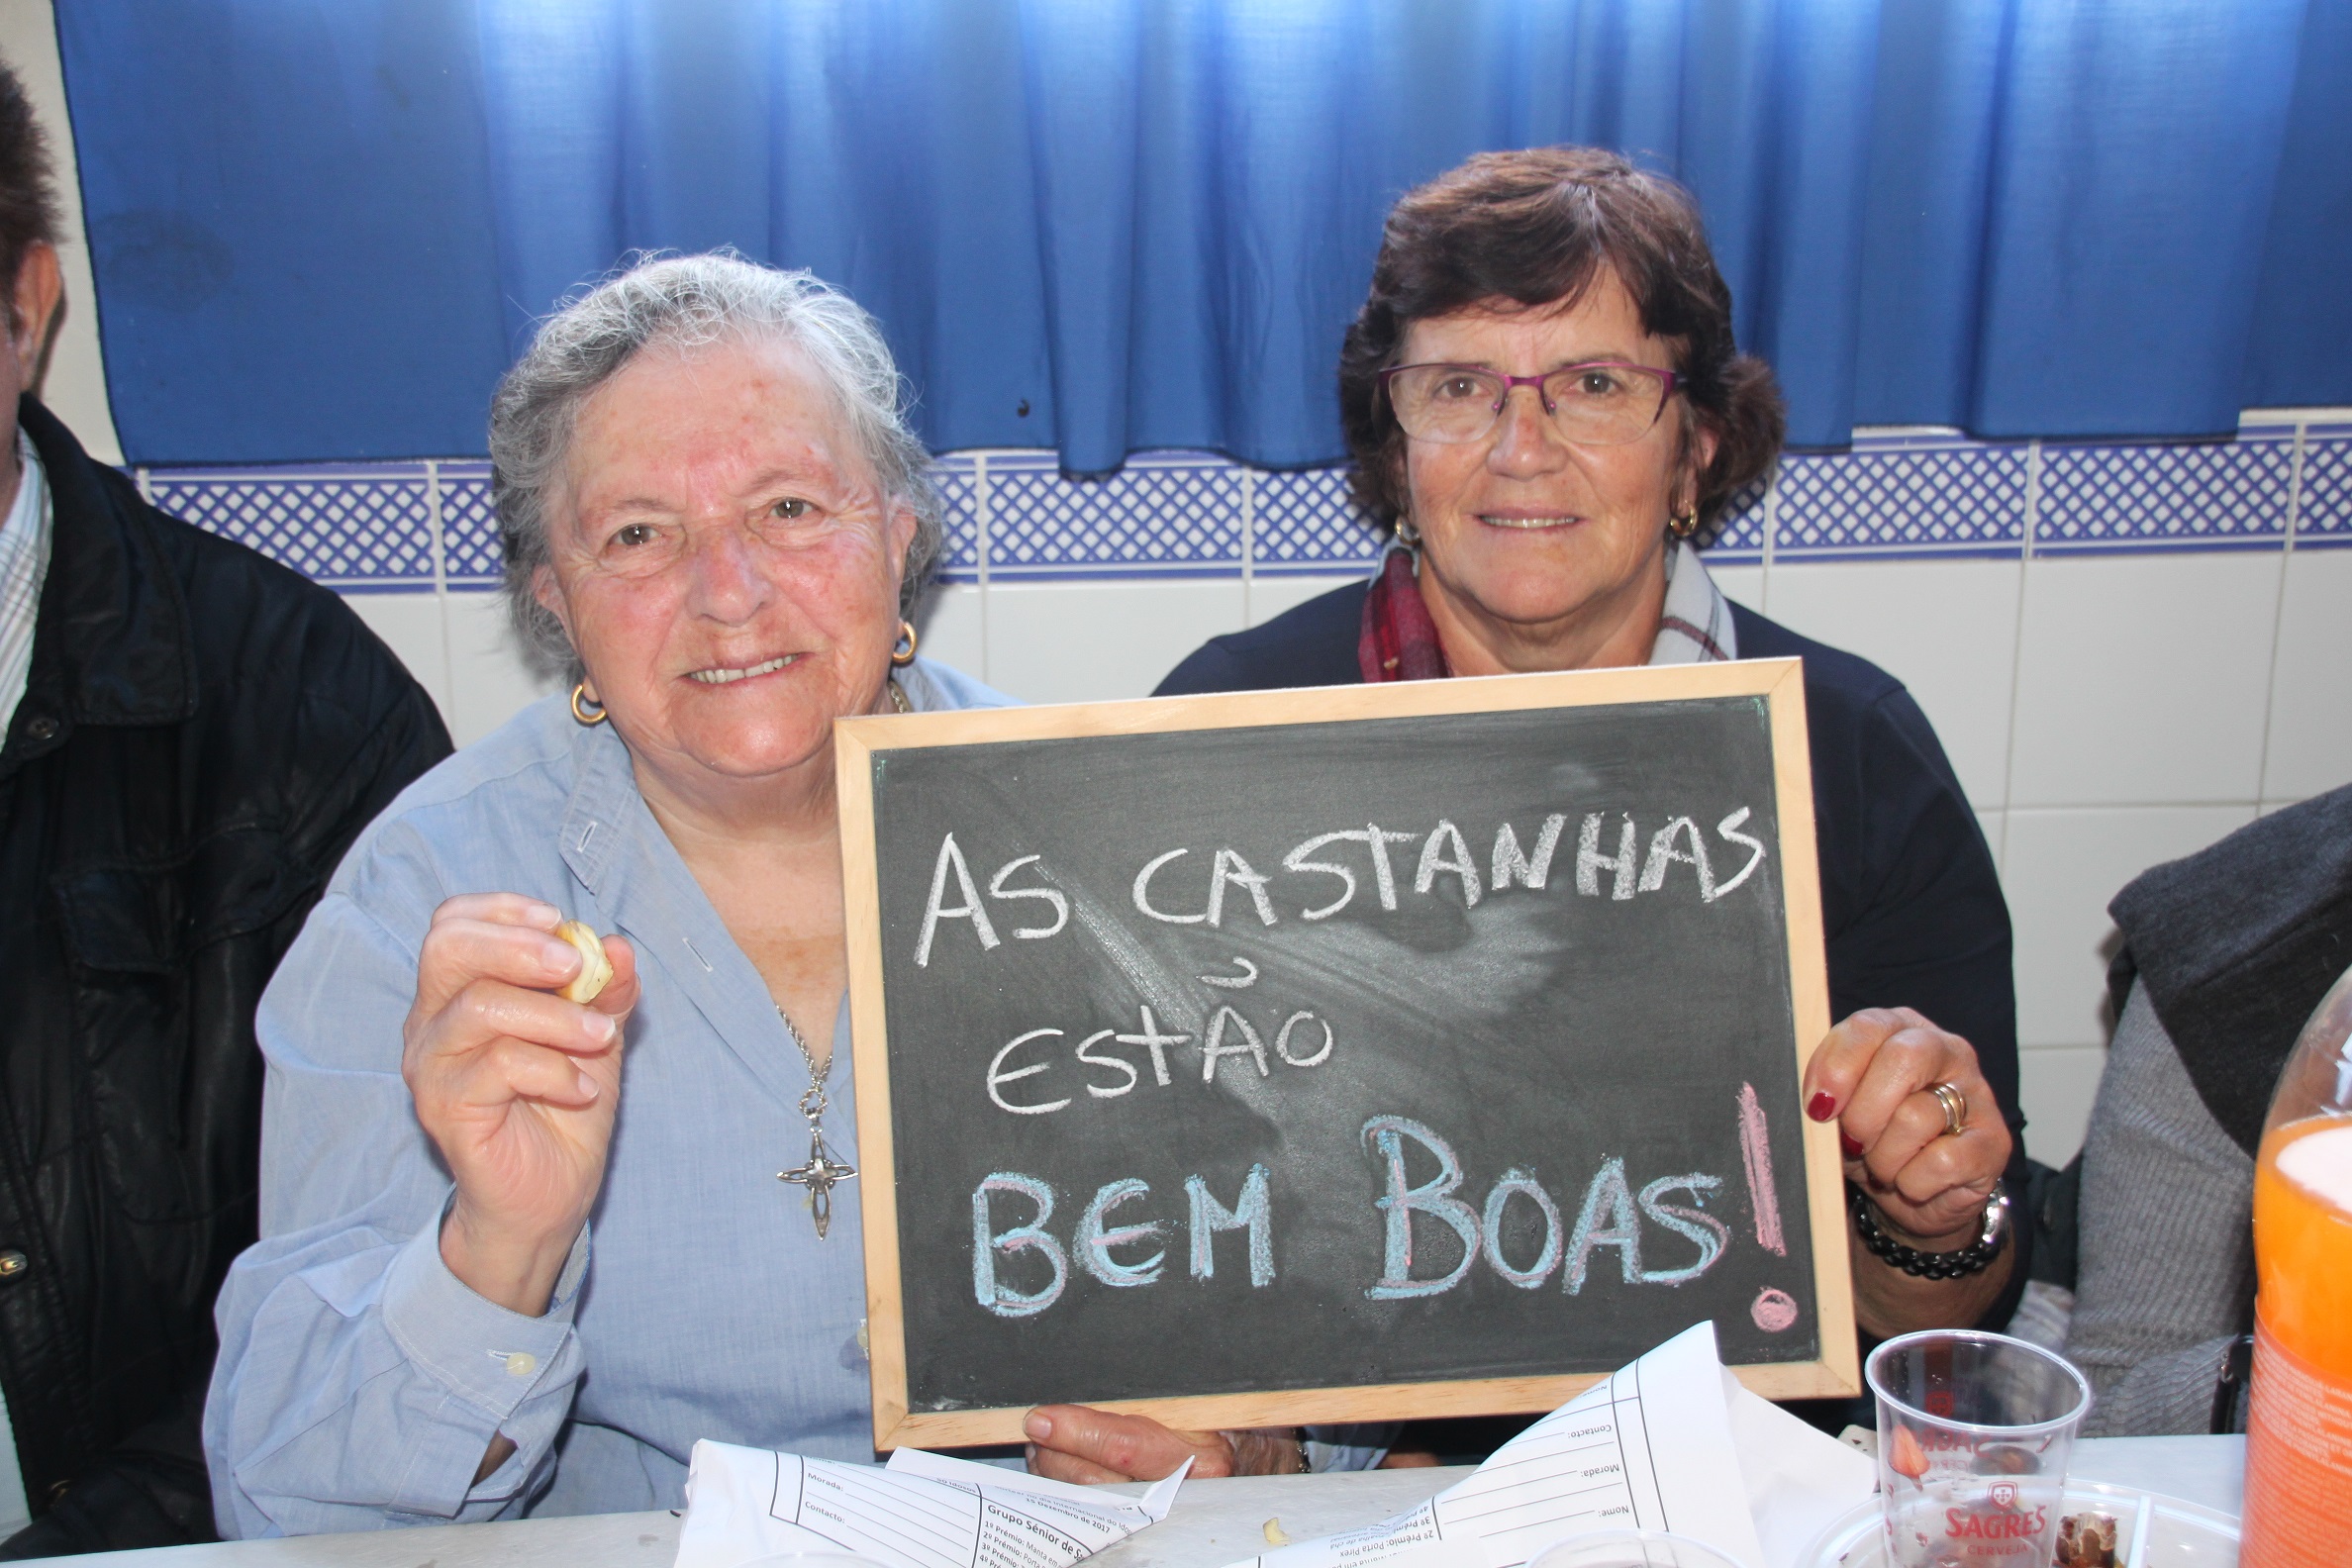 AS CASTANHAS
ESTÃO
BEM BOAS!
Morada:
Contacto:
Grupo Sénior de
15 Dezembro de 2017
1º Prémio: Manta
2º Prémio: Porta
3º Prémio:
4º Prémio:
Nome:
Contacto:
Morada:
Nome:
2º Prémio: Porta Pirex
3º Prémio:
SAGRES
CERVEJA